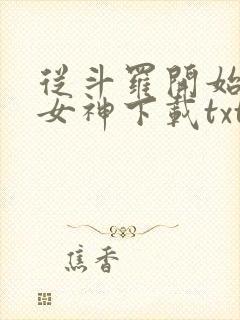 從斗羅開始
女神下載txt
焦香